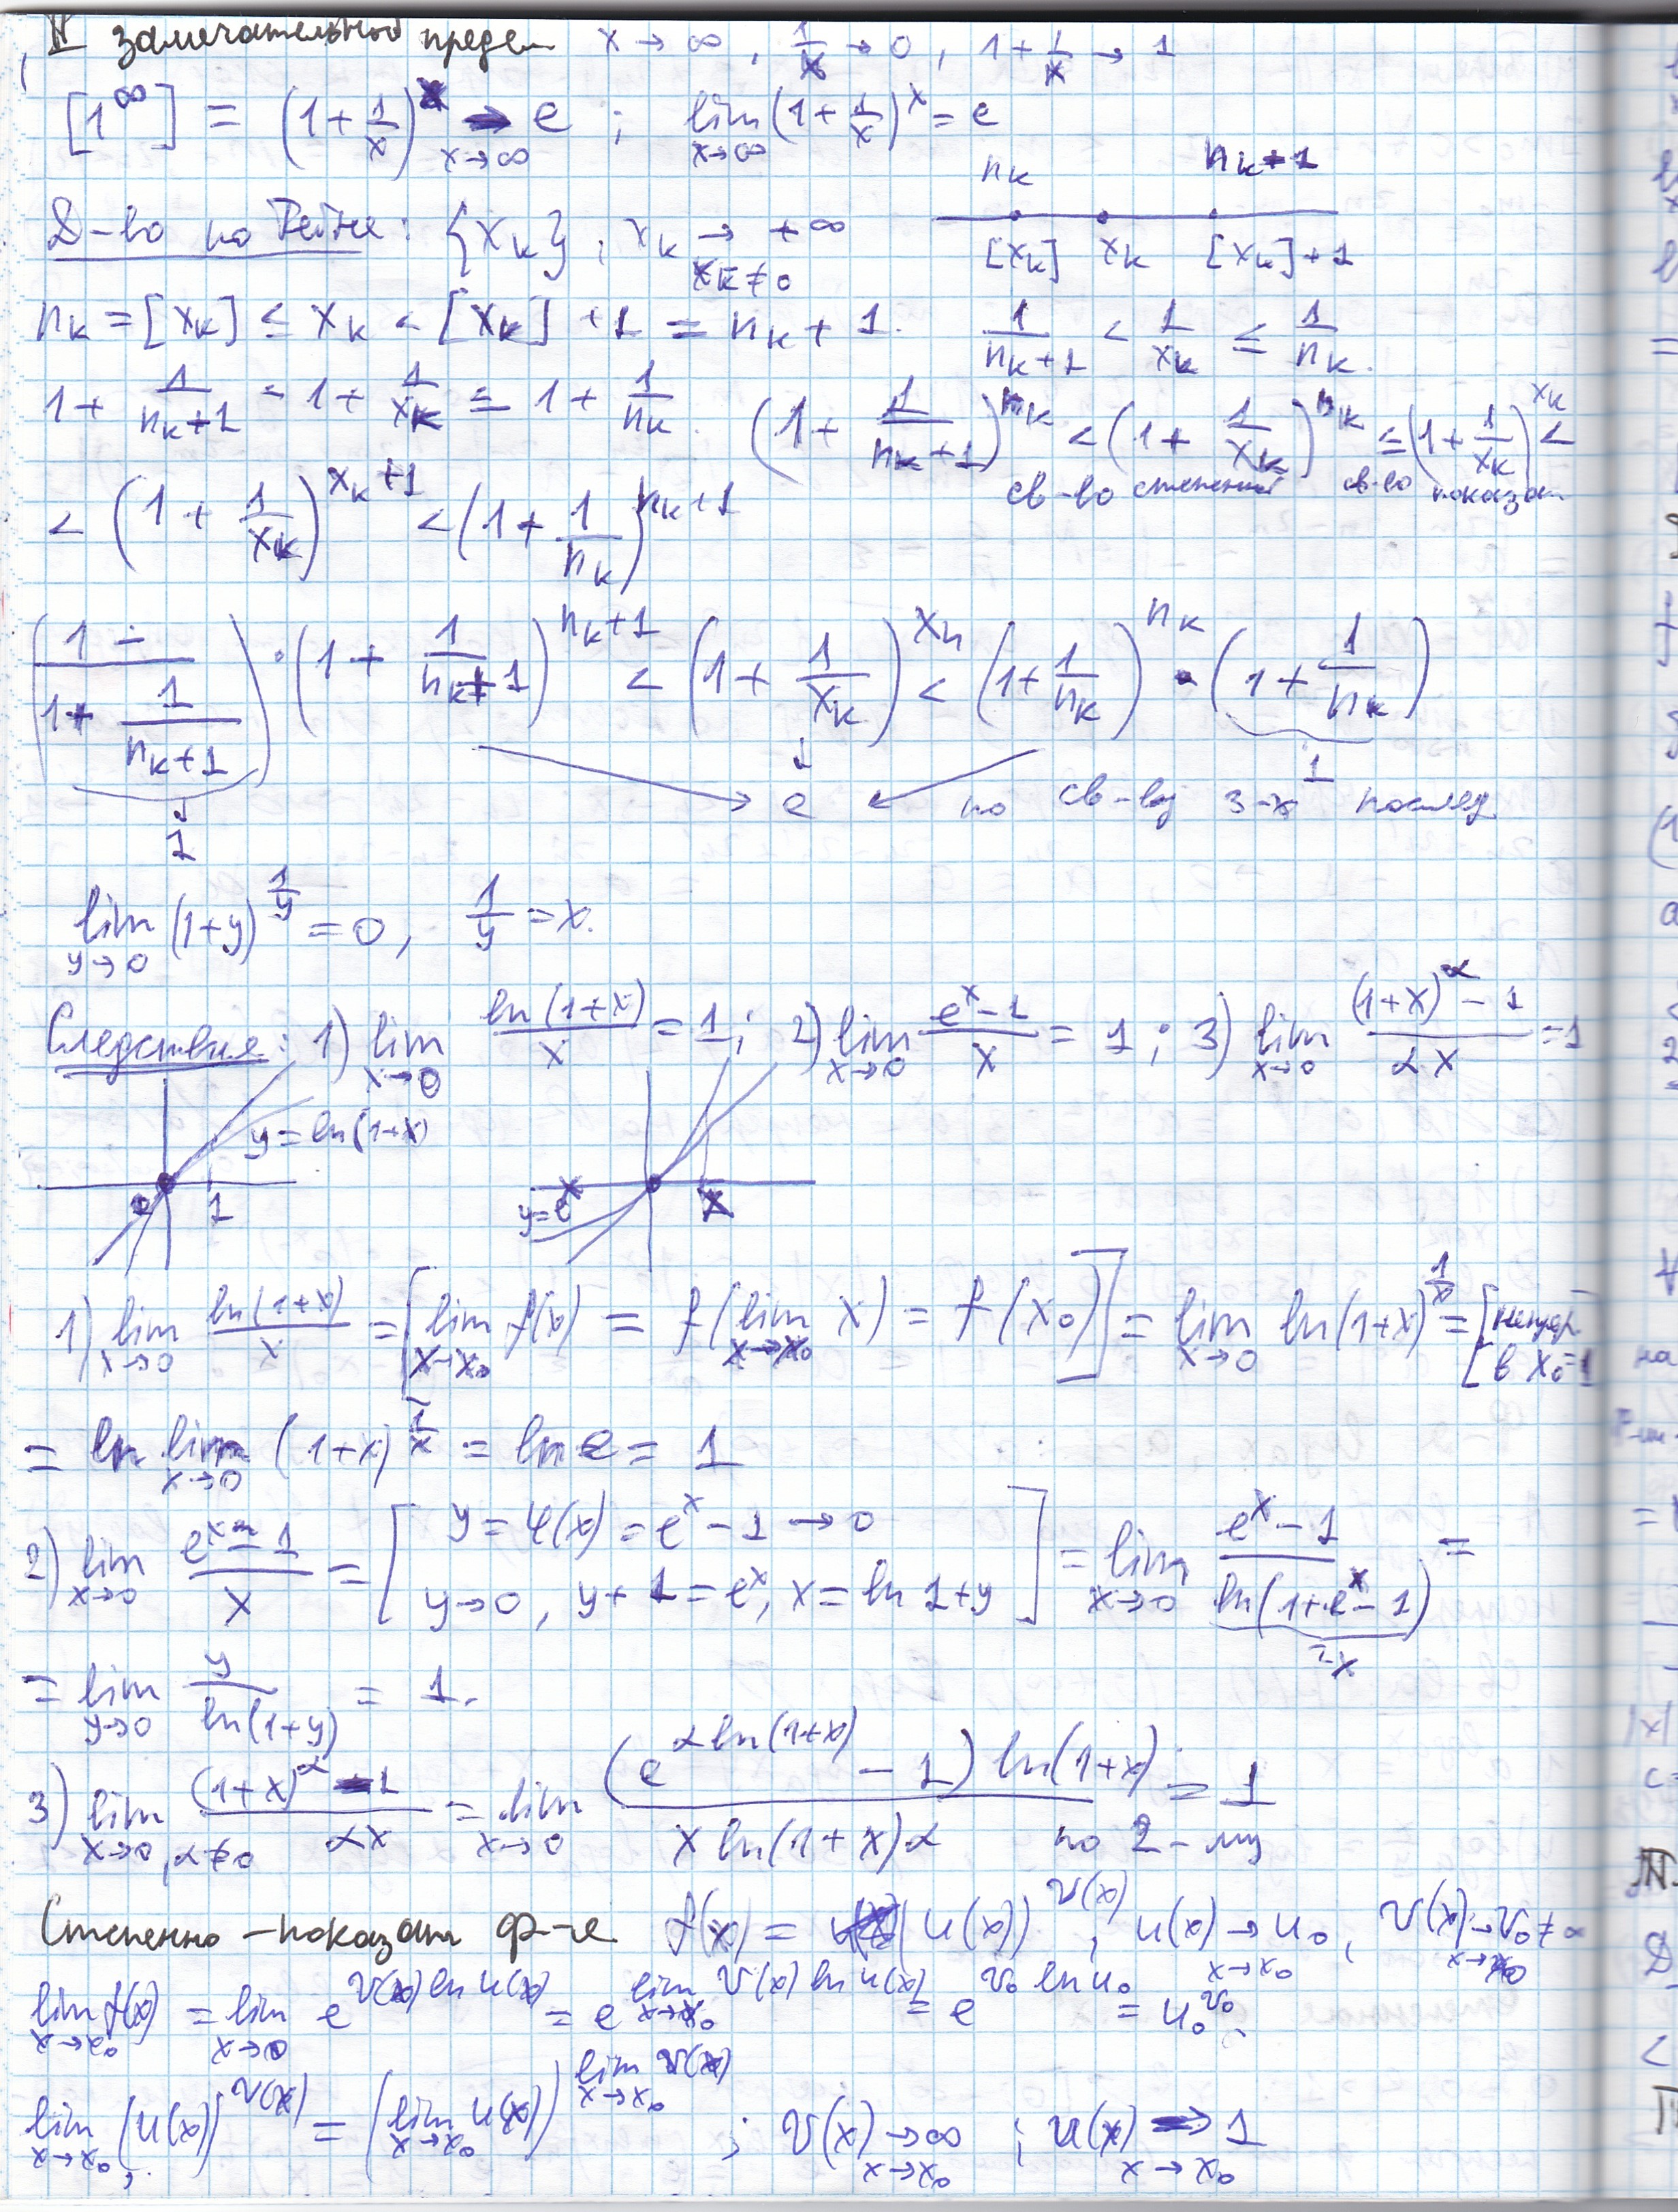 II замечательный предел x → ∞, 1/x → 0, 1 + 1/x → 1
[1^∞] = (1 + 1/x)^x → e x→∞ ; lim x→∞ (1 + 1/x)^x = e
n_k n_k+1
Д-во по Гейне: {x_k}, x_k → +∞ x_k ≠ 0 [x_k] x_k [x_k]+1
n_k = [x_k] ≤ x_k < [x_k] + 1 = n_k + 1. 1/(n_k+1) < 1/x_k ≤ 1/n_k.
1 + 1/(n_k+1) < 1 + 1/x_k ≤ 1 + 1/n_k. (1 + 1/(n_k+1))^n_k < (1 + 1/x_k)^n_k ≤ (1 + 1/x_k)^x_k <
св-во степенной св-во показат
< (1 + 1/x_k)^(x_k+1) < (1 + 1/n_k)^(n_k+1)
(1/(1 + 1/(n_k+1))) · (1 + 1/(n_k+1))^(n_k+1) < (1 + 1/x_k)^x_k < (1 + 1/n_k)^n_k · (1 + 1/n_k)
↓ 1 → e ← 1 по св-ву 3-х послед
lim y→0 (1+y)^(1/y) = 0, 1/y = x.
Следствия: 1) lim x→0 ln(1+x)/x = 1; 2) lim x→0 (e^x - 1)/x = 1; 3) lim x→0 ((1+x)^α - 1)/(αx) = 1
y = ln(1+x)
1 y = e^x
1) lim x→0 ln(1+x)/x = [lim x→x₀ f(x) = f(lim x→x₀ x) = f(x₀)] = lim x→0 ln(1+x)^(1/x) = [непрер в x₀=1
= ln lim x→0 (1+x)^(1/x) = ln e = 1
2) lim x→0 (e^x - 1)/x = [y = φ(x) = e^x - 1 → 0
y→0, y + 1 = e^x, x = ln 1+y] = lim x→0 (e^x - 1)/ln(1+e^x - 1) =
=x
= lim y→0 y/ln(1+y) = 1.
3) lim x→0, α≠0 ((1+x)^α - 1)/(αx) = lim x→0 ((e^(α ln(1+x)) - 1) ln(1+x))/(x ln(1+x)α) = 1
по 2-му
Степенно-показат ф-я f(x) = (u(x))^v(x), u(x) → u₀ x→x₀, v(x) → v₀ ≠ ∞ x→x₀
lim x→x₀ f(x) = lim x→0 e^(v(x) ln u(x)) = e^(lim x→x₀ v(x) ln u(x)) = e^(v₀ ln u₀) = u₀^v₀.
lim x→x₀ (u(x))^v(x) = (lim x→x₀ u(x))^(lim x→x₀ v(x)) ; v(x) → ∞ x→x₀ ; u(x) → 1 x→x₀